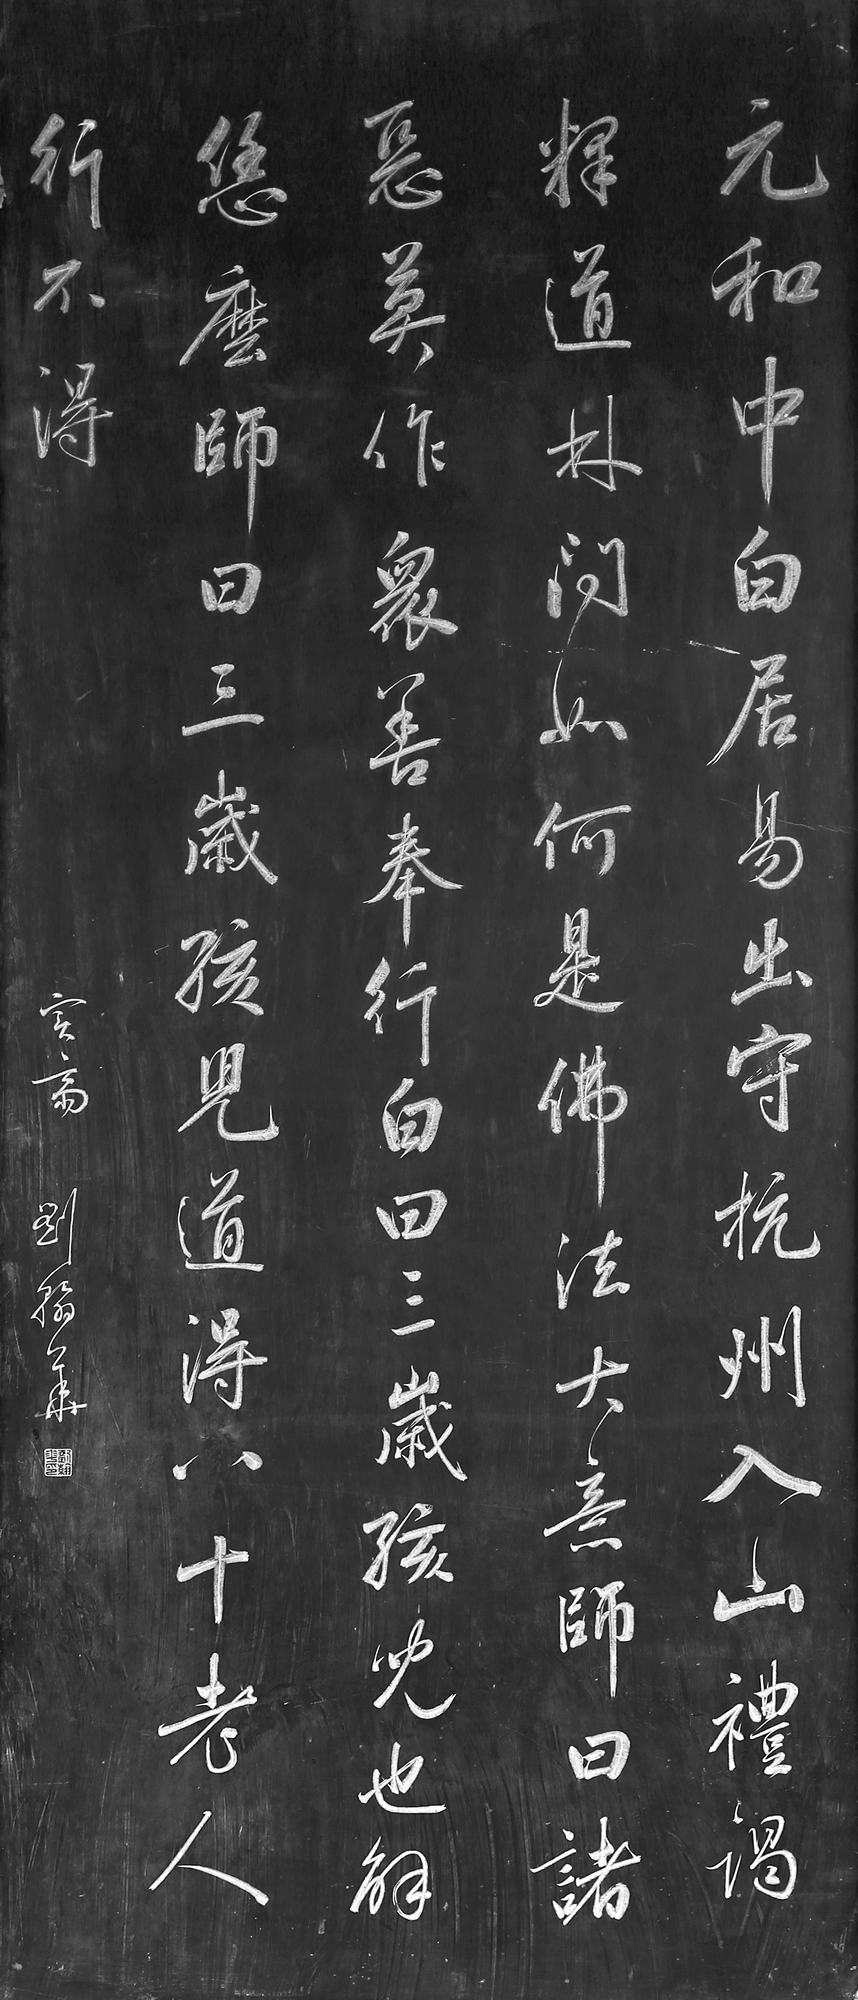 元和中白居易出守杭州入山禮謁
釋道林問如何是佛法大意師曰諸
惡莫作衆善奉行白曰三歲孩兒也解
恁麼師曰三歲孩兒道得八十老人
行不得
劉